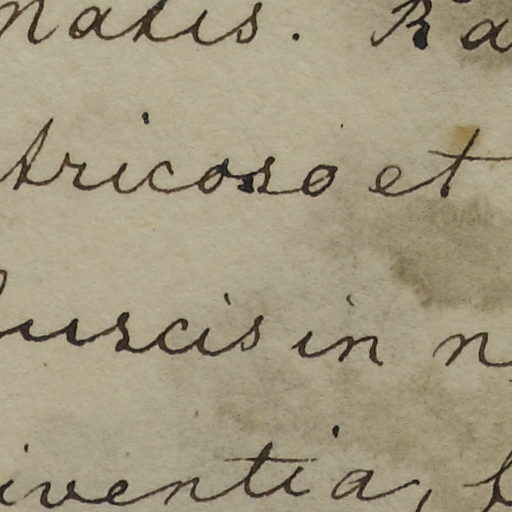 natis. Ra
tricoso et
fuscis in n
iventia, f